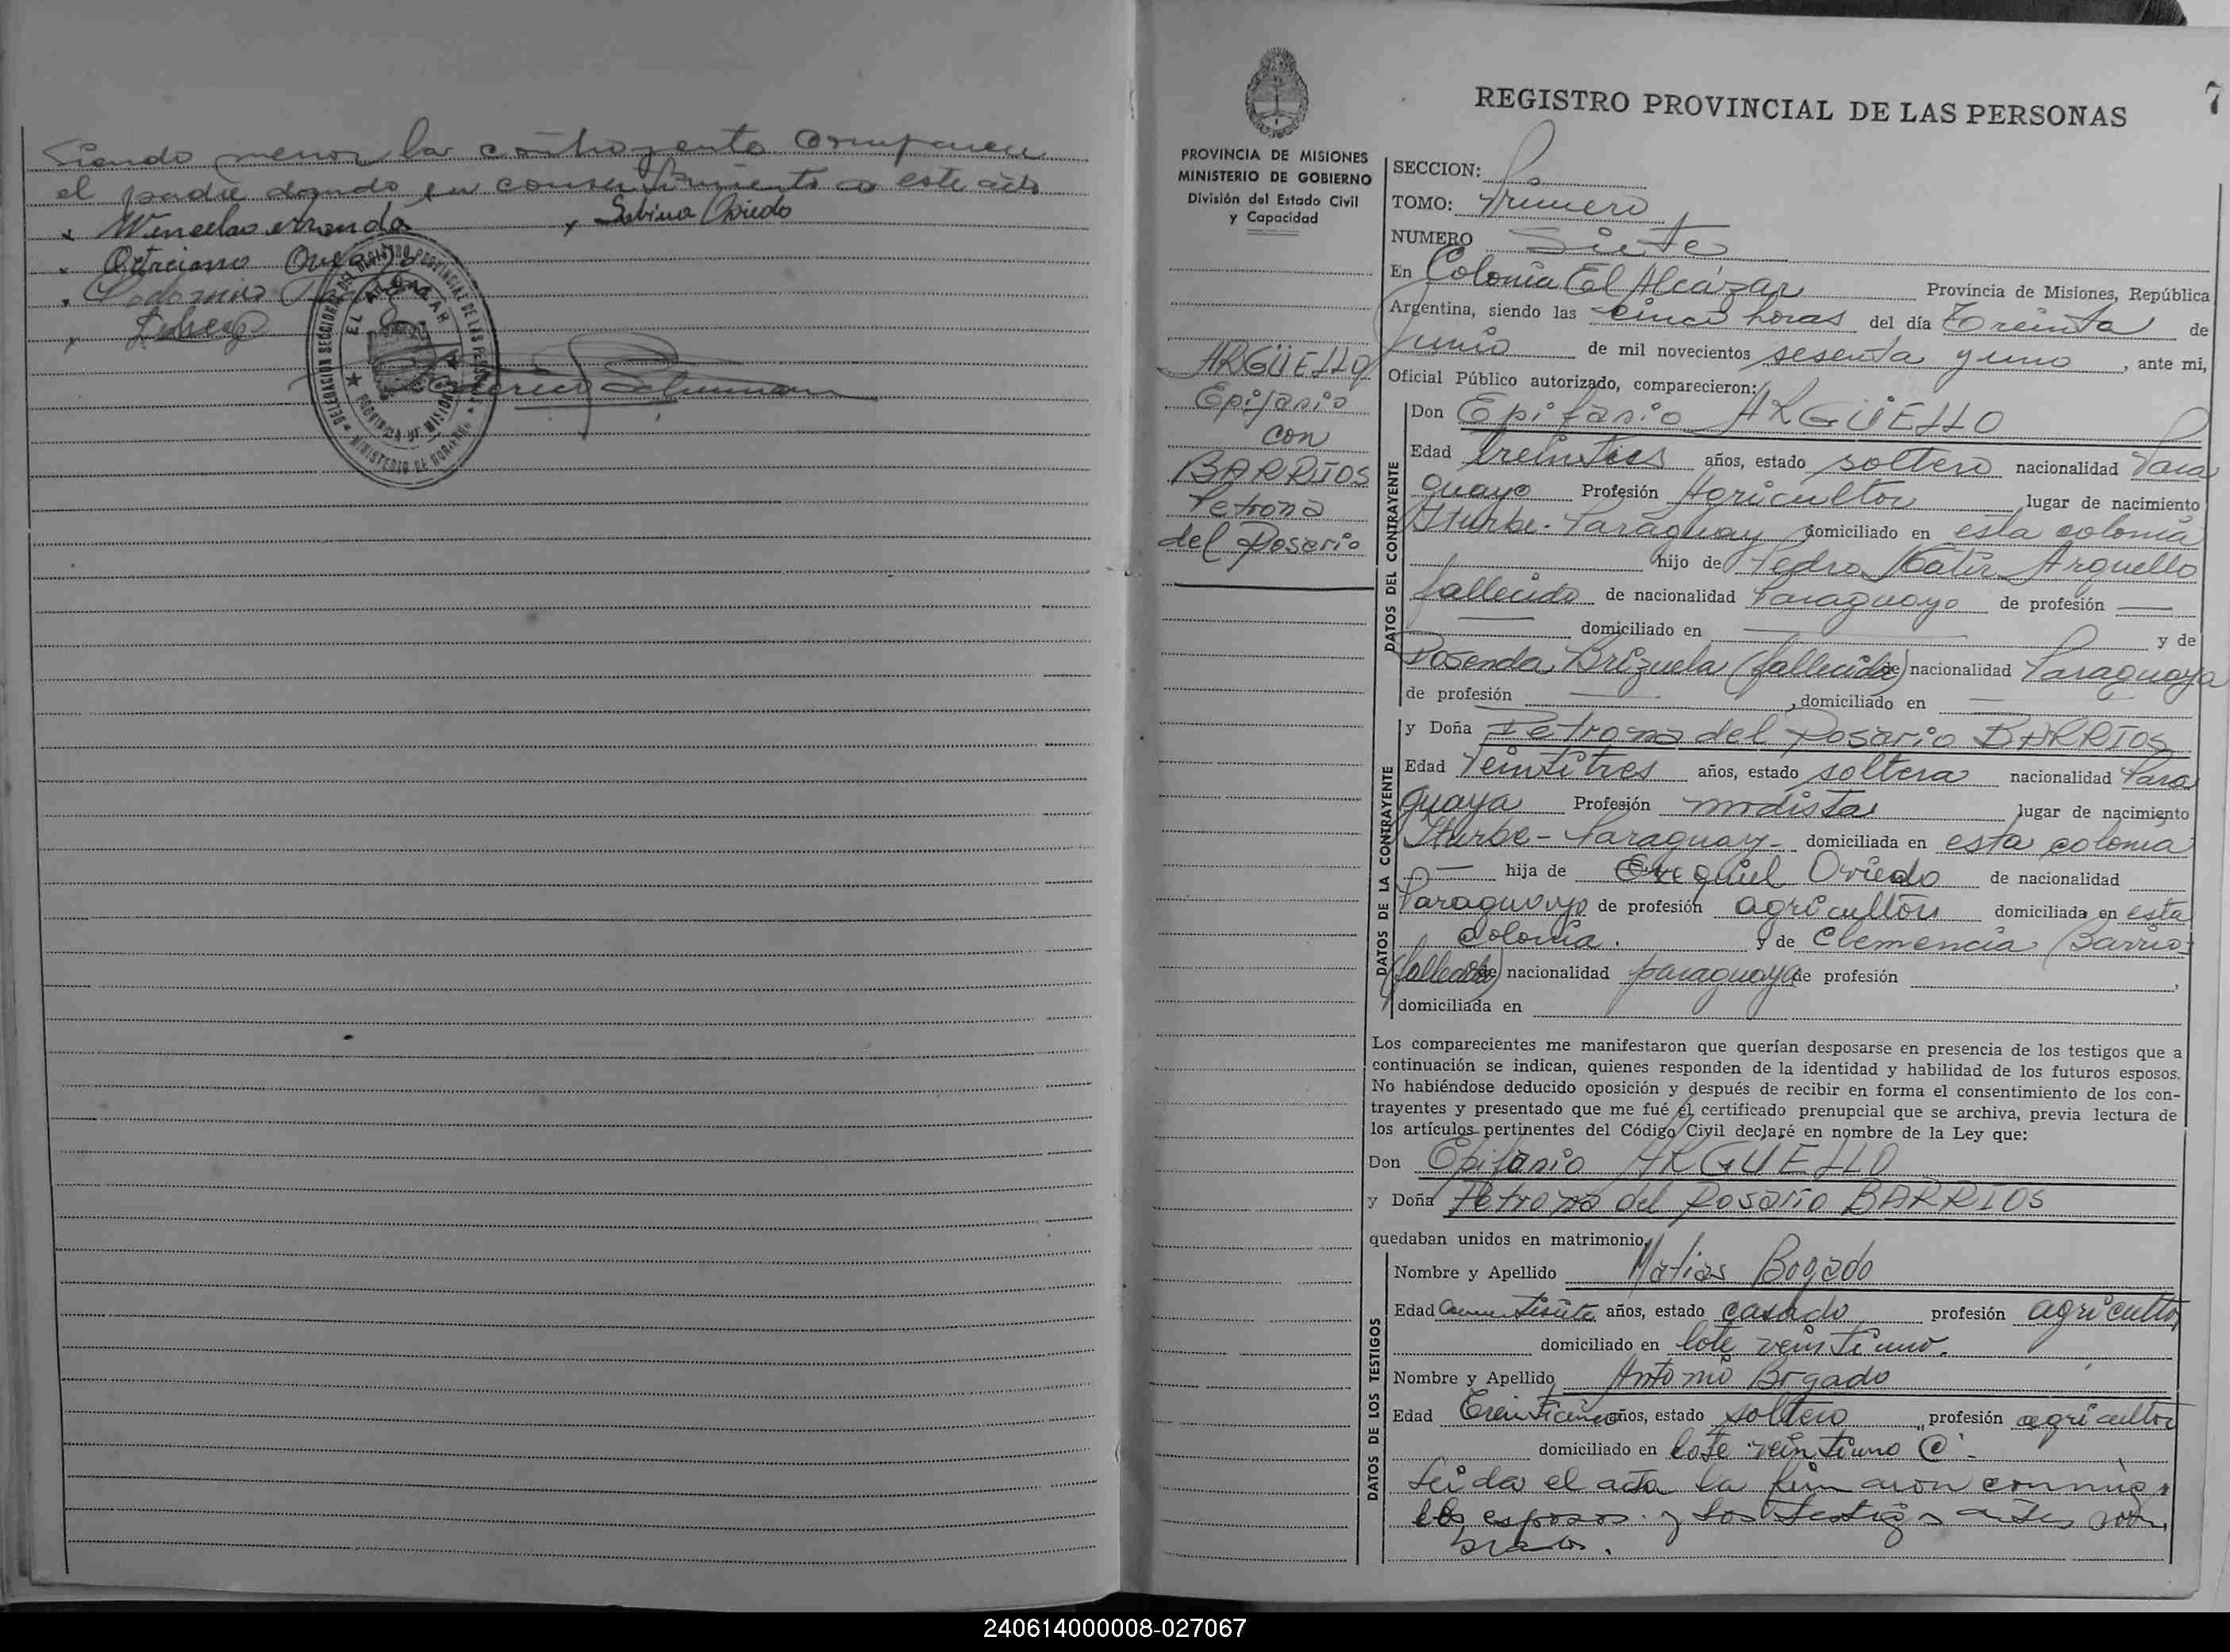 Siendo menor la contrayente comparece
el padre dando su consentimiento a este acto
x Wenceslao Miranda x Sabina Oviedo
x Patriciano
DELEGACION SECCIONAL DEL REGISTRO PROVINCIAL DE LAS PERSONAS
EL ALCAZAR
PROVINCIA DE MISIONES
MINISTERIO DE GOBIERNO
7
REGISTRO PROVINCIAL DE LAS PERSONAS
PROVINCIA DE MISIONES
MINISTERIO DE GOBIERNO
División del Estado Civil
y Capacidad
ARGÜELLO
Epifanio
con
BARRIOS
Petrona
del Rosario
SECCION:
TOMO: Primero
NUMERO Siete
En Colonia El Alcázar Provincia de Misiones, República
Argentina, siendo las cinco horas del día Treinta de
Junio de mil novecientos sesenta y uno, ante mi,
Oficial Público autorizado, comparecieron:
DATOS DEL CONTRAYENTE
Don Epifanio ARGÜELLO
Edad treintitres años, estado soltero nacionalidad Para
guayo Profesión Agricultor lugar de nacimiento
Iturbe-Paraguay domiciliado en esta colonia
hijo de Pedro Arguello
fallecido de nacionalidad Paraguayo de profesión —
— domiciliado en — y de
Rosenda Brizuela (fallecida) de nacionalidad Paraguaya
de profesión —, domiciliado en —
DATOS DE LA CONTRAYENTE
y Doña Petrona del Rosario BARRIOS
Edad Veintitres años, estado soltera nacionalidad Para
guaya Profesión modista lugar de nacimiento
Iturbe-Paraguay- domiciliada en esta colonia
— hija de Exequiel Oviedo de nacionalidad
Paraguayo de profesión agricultor domiciliada en esta
Colonia. y de Clemencia Barrios
(fallecida) de nacionalidad paraguaya de profesión ,
domiciliada en
Los comparecientes me manifestaron que querían desposarse en presencia de los testigos que a
continuación se indican, quienes responden de la identidad y habilidad de los futuros esposos.
No habiéndose deducido oposición y después de recibir en forma el consentimiento de los con-
trayentes y presentado que me fué el certificado prenupcial que se archiva, previa lectura de
los artículos pertinentes del Código Civil declaré en nombre de la Ley que:
Don Epifanio ARGUELLO
y Doña Petrona del Rosario BARRIOS
quedaban unidos en matrimonio.
DATOS DE LOS TESTIGOS
Nombre y Apellido Matias Bogado
Edad años, estado casado profesión agricultor
domiciliado en lote veintiuno.
Nombre y Apellido Antonio Bogado
Edad Treinticinco años, estado soltero profesión agricultor
domiciliado en lote veintiuno C-
Leida el acta la firmaron conmigo
los esposos y los testigos antes nom
brados.
240614000008-027067